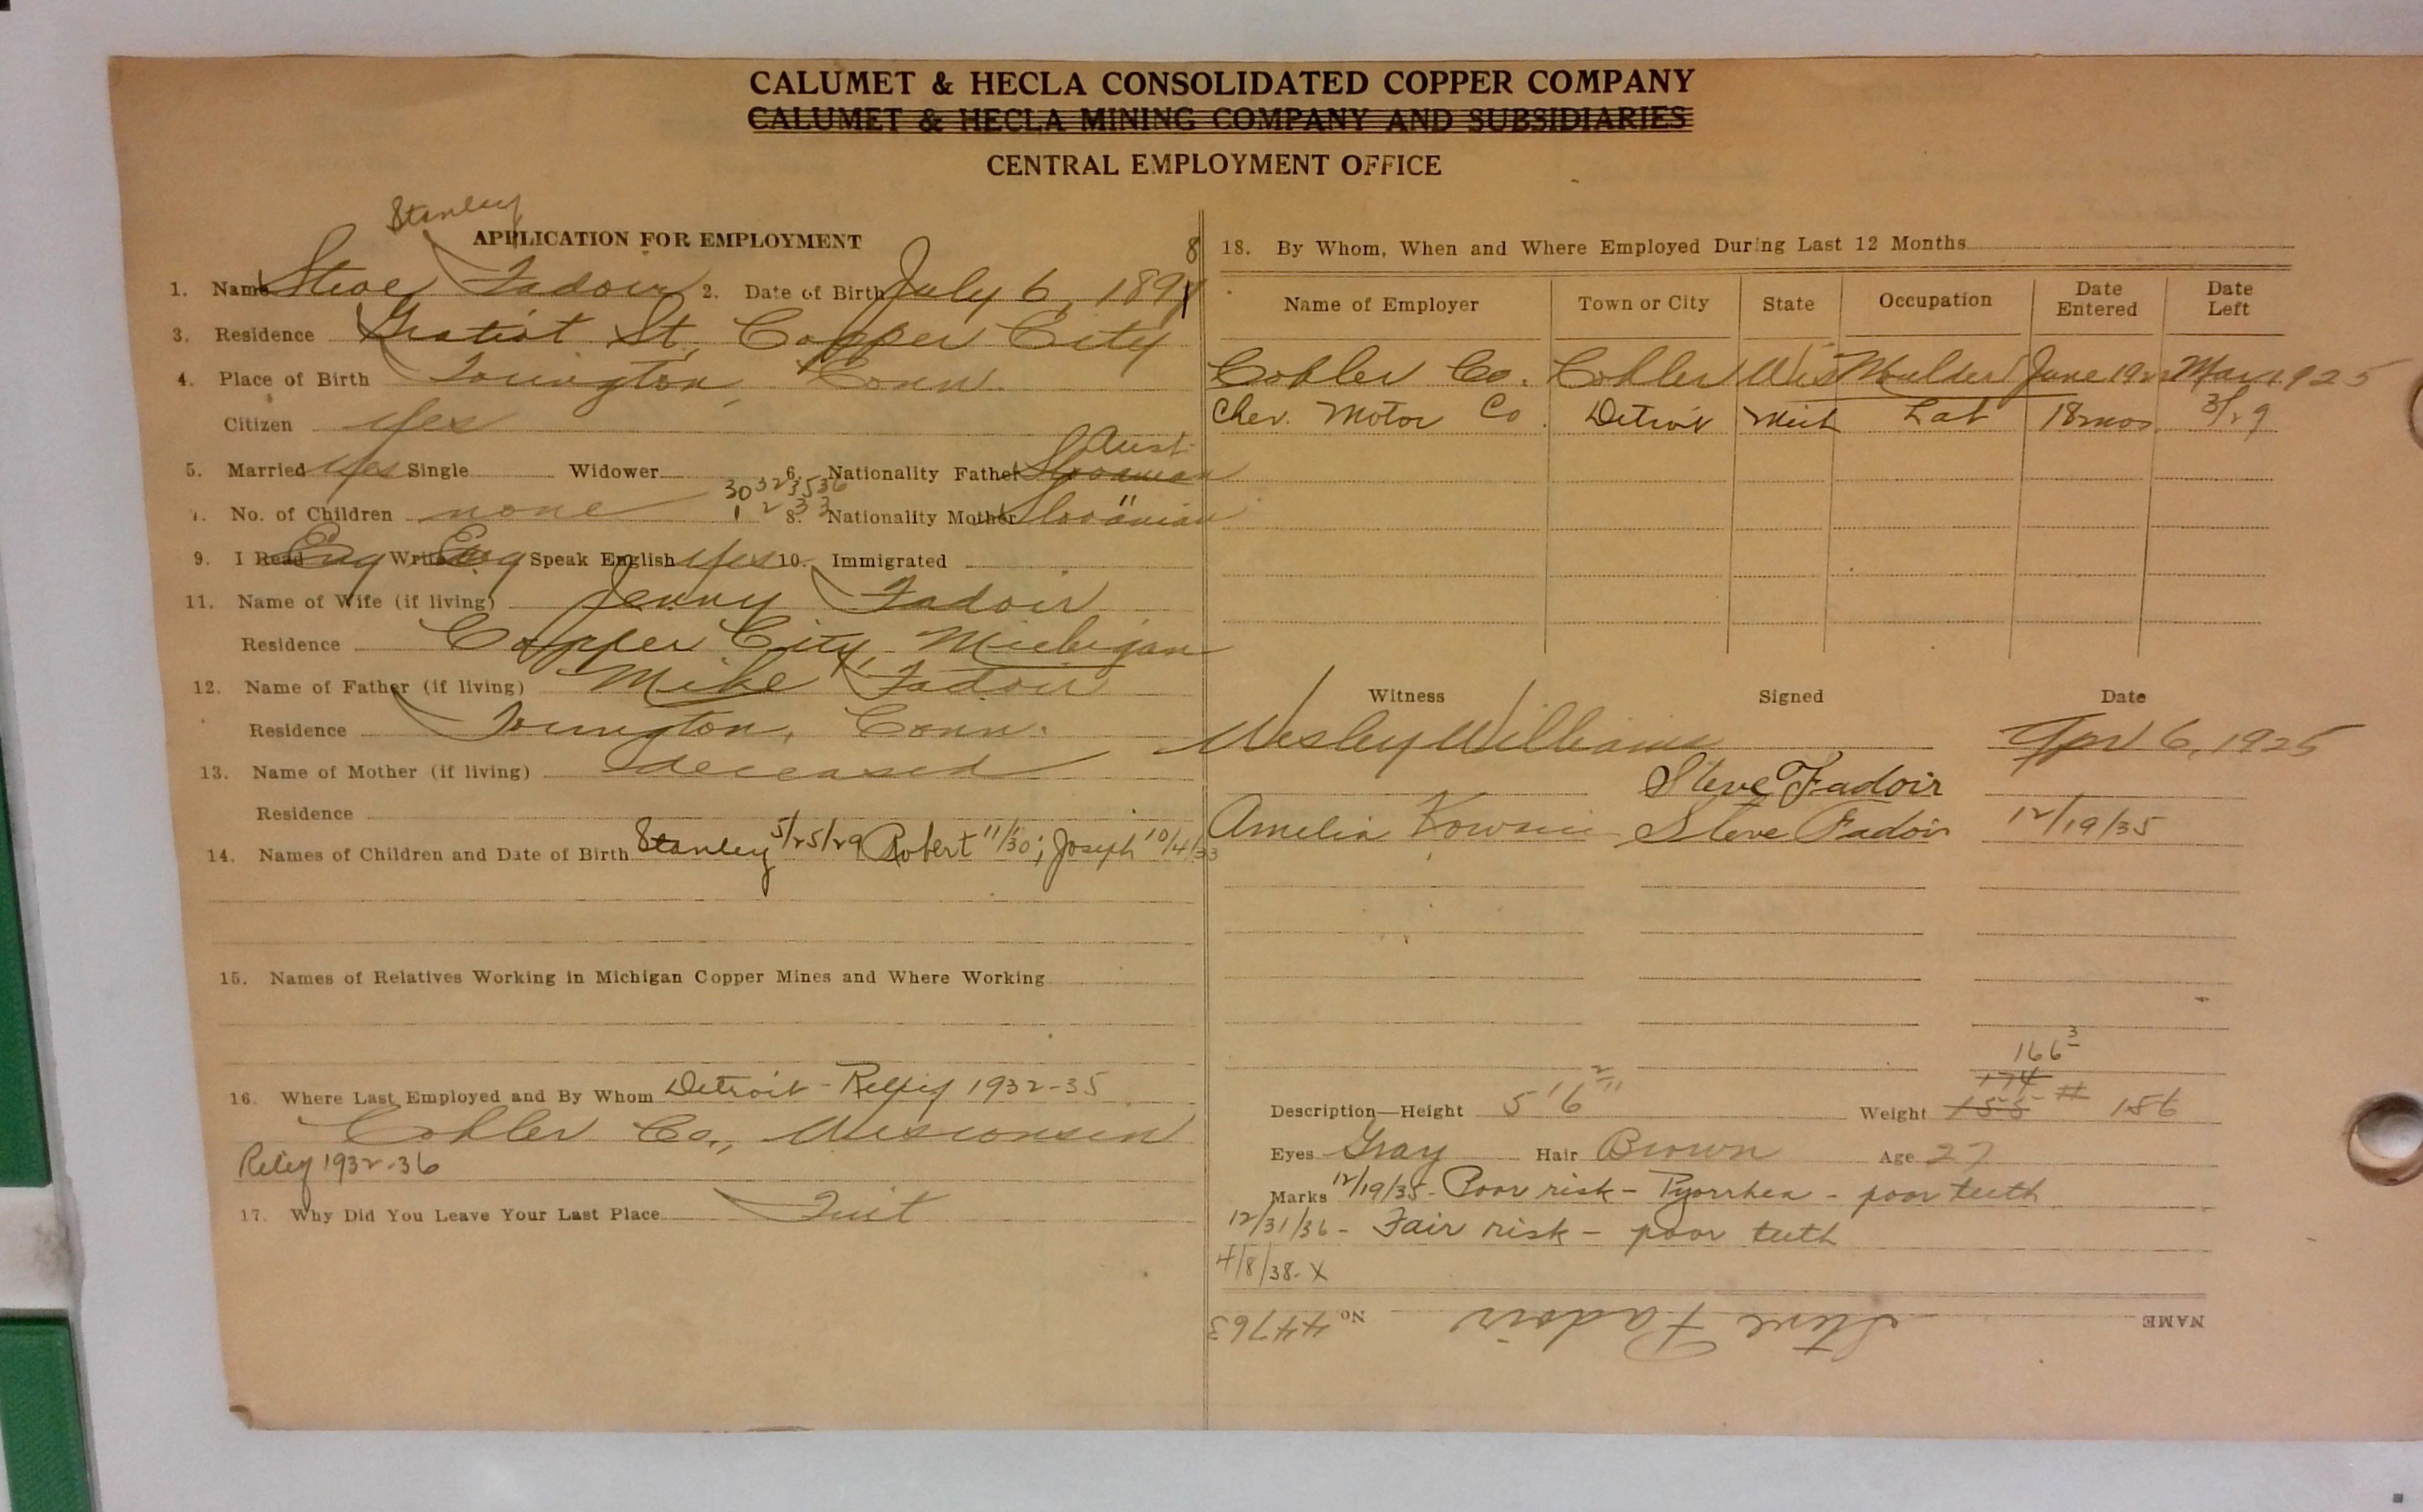 CALUMET & HECLA CONSOLIDATED COPPER COMPANY
CALUMET & HECLA MINING COMPANY AND SUBSIDIARIES
CENTRAL EMPLOYMENT OFFICE
Stanley
APPLICATION FOR EMPLOYMENT
1. Name Steve Fadoir 2. Date of Birth July 6, 189 8
3. Residence Gratiot St, Copper City
4. Place of Birth Torrington, Conn.
Citizen Yes
5. Married Yes Single Widower 6. Nationality Father Slovanian Aust.
30 32 35 36
1 2 3 3
7. No. of Children none 8. Nationality Mother Slovanian "
9. I Read Eng Write Eng Speak English Yes 10. Immigrated
11. Name of Wife (if living) Jenny Fadoir
Residence Copper City, Michigan
12. Name of Father (if living) Mike Fadoir
Residence Torrington, Conn.
13. Name of Mother (if living) deceased
Residence
14. Names of Children and Date of Birth Stanley 5/25/29 Robert 11/30; Joseph 10/4/33
15. Names of Relatives Working in Michigan Copper Mines and Where Working
16. Where Last Employed and By Whom Detroit - Relief 1932-35
Cohler Co., Wisconsin
Relief 1932-36
17. Why Did You Leave Your Last Place Quit
18. By Whom, When and Where Employed During Last 12 Months
Name of Employer Town or City State Occupation Date Entered Date Left
Cohler Co. Cohler Wis Moulder June 192 Mar 1925
Chev. Motor Co Detroit Mich Lab 18 mos. 3/29
Witness Signed Date
Wesley Williams Apr 6, 1925
Steve Fadoir
Amelia Steve Fadoir 12/19/35
166 3
174
Description—Height 5' 6 2" Weight 155 # 156
Eyes Gray Hair Brown Age 27
Marks 12/19/35 - Poor risk - Pyorrhea - poor teeth
12/31/36 - Fair risk - poor teeth
4/8/38 - X
NAME Steve Fadoir No 44763